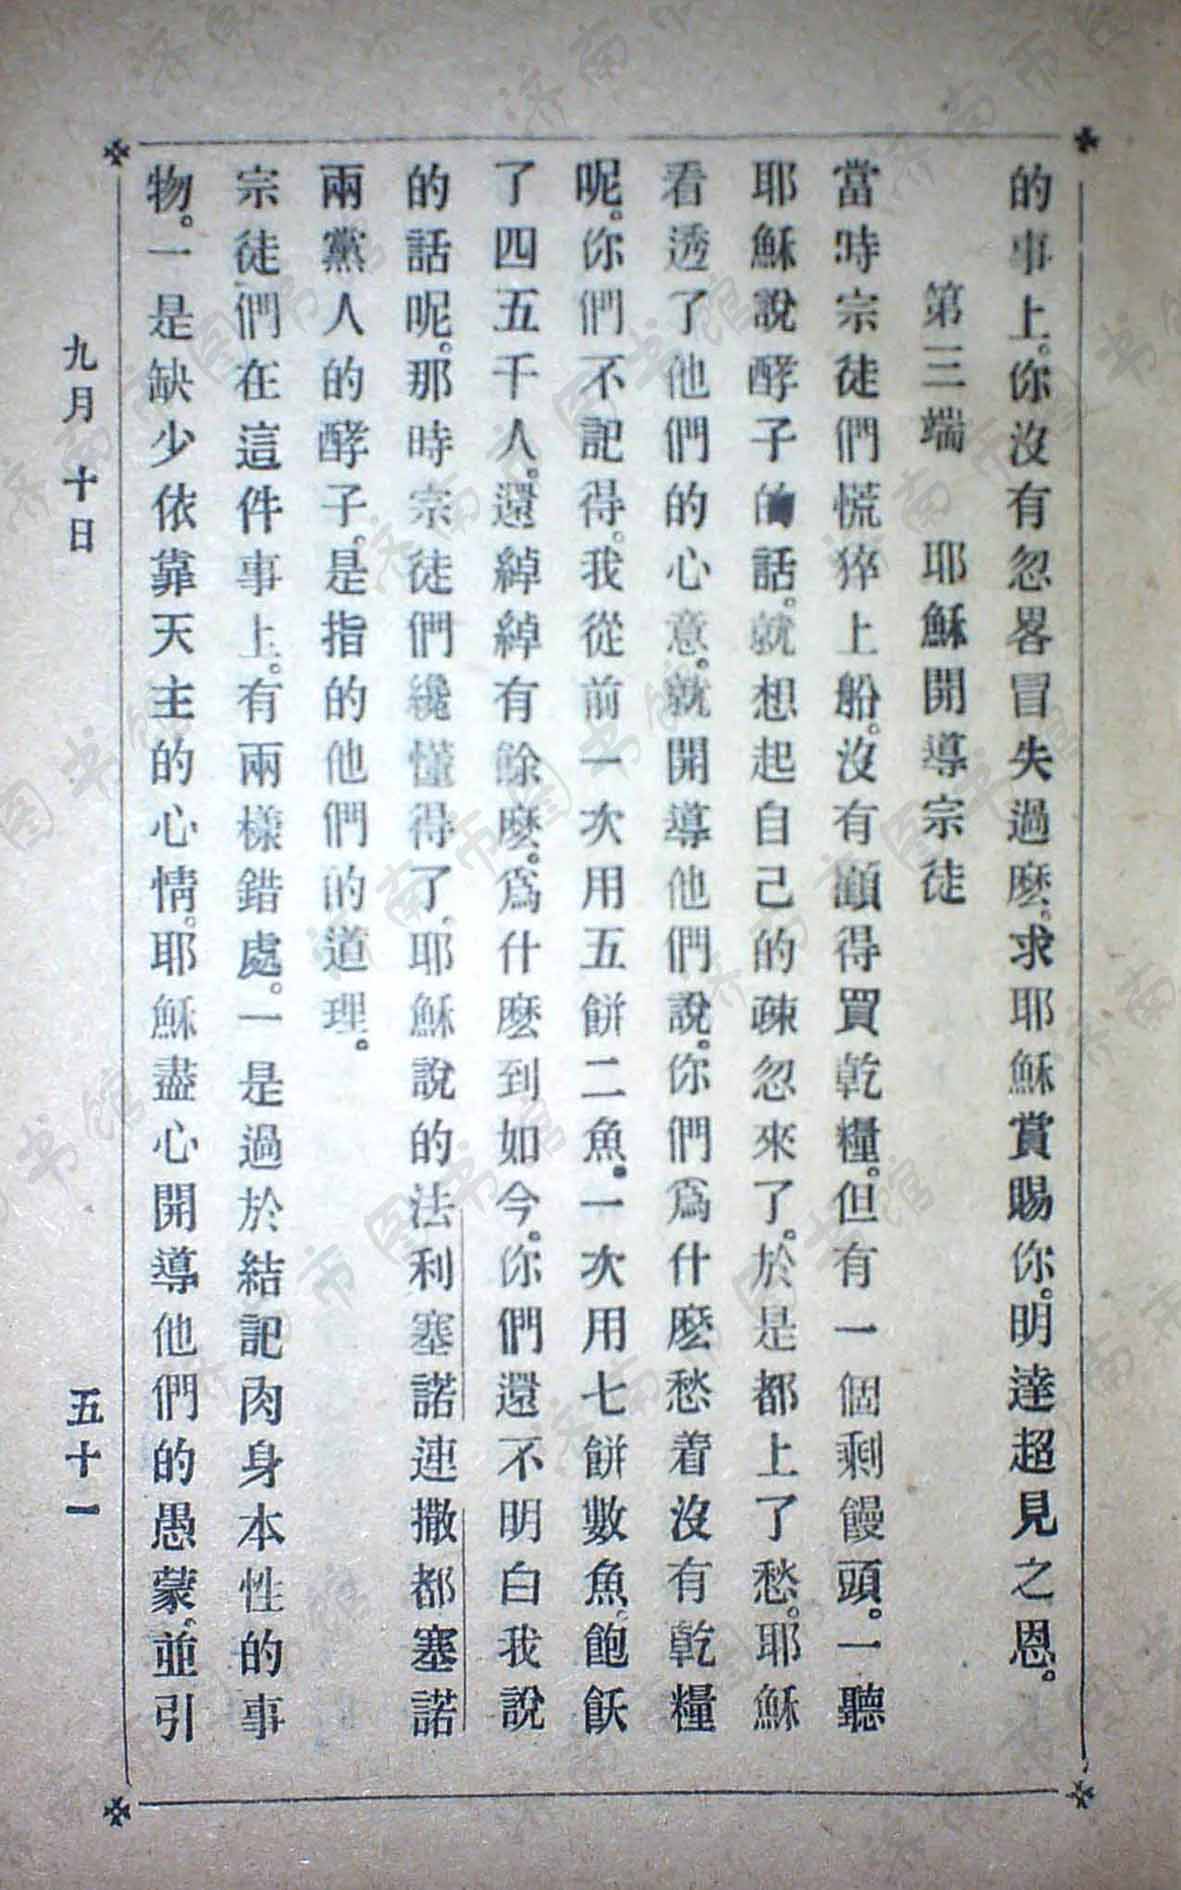 的事上。你沒有忽畧冒失過麽。求耶穌賞賜你。明達超見之恩。
第三端　耶穌開導宗徒
當時宗徒們慌猝上船。沒有顧得買乾糧。但有一個剩饅頭。一聽
耶穌說酵子的話。就想起自己的疎忽來了。於是都上了愁。耶穌
看透了他們的心意。就開導他們說。你們爲什麽愁着沒有乾糧
呢。你們不記得。我從前一次用五餅二魚。一次用七餅數魚。飽飫
了四五千人。還綽綽有餘麽。爲什麽到如今。你們還不明白我說
的話呢。那時宗徒們纔懂得了。耶穌說的法利塞諾連撒都塞諾
兩黨人的酵子。是指的他們的道理。
宗徒們在這件事上。有兩樣錯處。一是過於結記肉身本性的事
物。一是缺少依靠天主的心情。耶穌盡心開導他們的愚蒙。並引
九月　十日　五十一
济南市图书馆